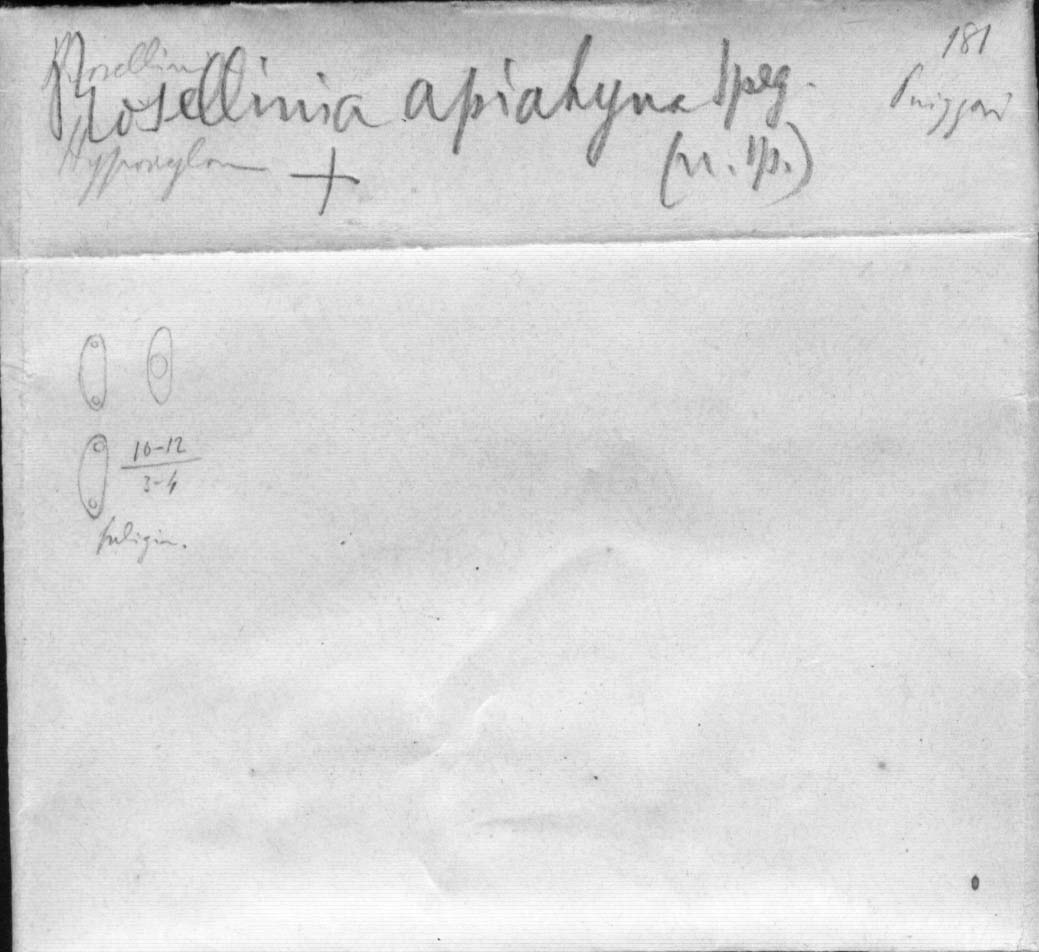 181
Rosellinia
Rosellinia apiahyna Speg.
Puiggari
Hypoxylon + (n. sp.)
10-12
3-4
fuligin.